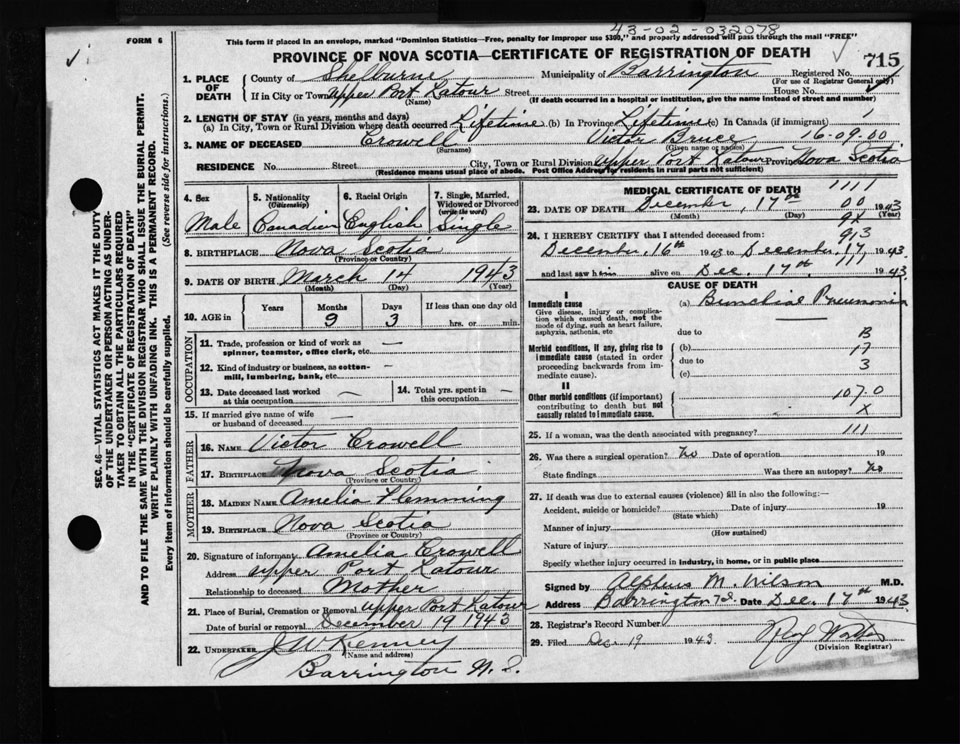 43-02-032078
FORM 6
This form if placed in an envelope, marked "Dominion Statistics—Free, penalty for improper use $300," and properly addressed will pass through the mail "FREE"
PROVINCE OF NOVA SCOTIA—CERTIFICATE OF REGISTRATION OF DEATH
715
1. PLACE OF DEATH
County of Shelburne Municipality of Barrington Registered No.
(For use of Registrar General only)
If in City or Town Upper Port Latour Street House No.
(Name) (If death occurred in a hospital or institution, give the name instead of street and number)
2. LENGTH OF STAY (in years, months and days)
(a) In City, Town or Rural Division where death occurred Lifetime (b) In Province Lifetime (c) In Canada (if immigrant) 1
3. NAME OF DECEASED Crowell Victor Bruce 16-09-00
(Surname) (Given name or names)
RESIDENCE No. Street City, Town or Rural Division Upper Port Latour Province Nova Scotia
(Residence means usual place of abode. Post Office Address for residents in rural parts not sufficient)
SEC. 46—VITAL STATISTICS ACT MAKES IT THE DUTY
OF THE UNDERTAKER OR PERSON ACTING AS UNDER-
TAKER TO OBTAIN ALL THE PARTICULARS REQUIRED
IN THE "CERTIFICATE OF REGISTRATION OF DEATH"
AND TO FILE THE SAME WITH THE DIVISION REGISTRAR WHO SHALL ISSUE THE BURIAL PERMIT.
WRITE PLAINLY WITH UNFADING INK. THIS IS A PERMANENT RECORD.
Every item of information should be carefully supplied. (See reverse side for instructions.)
4. Sex 5. Nationality (Citizenship) 6. Racial Origin 7. Single, Married, Widowed or Divorced (write the word)
Male Canadian English Single
8. BIRTHPLACE Nova Scotia
(Province or Country)
9. DATE OF BIRTH March 14 1943
(Month) (Day) (Year)
10. AGE in Years Months Days If less than one day old
9 3 hrs. or min.
OCCUPATION
11. Trade, profession or kind of work as spinner, teamster, office clerk, etc. —
12. Kind of industry or business, as cotton-mill, lumbering, bank, etc. —
13. Date deceased last worked at this occupation —
14. Total yrs. spent in this occupation —
15. If married give name of wife or husband of deceased —
FATHER
16. NAME Victor Crowell
17. BIRTHPLACE Nova Scotia
(Province or Country)
MOTHER
18. MAIDEN NAME Amelia Flemming
19. BIRTHPLACE Nova Scotia
(Province or Country)
20. Signature of informant Amelia Crowell
Address Upper Port Latour
Relationship to deceased Mother
21. Place of Burial, Cremation or Removal Upper Port Latour
Date of burial or removal December 19 1943
22. UNDERTAKER J W Kenney
(Name and address)
Barrington N. S.
MEDICAL CERTIFICATE OF DEATH 1111
23. DATE OF DEATH December, 17th 1943
00
(Month) (Day) (Year)
9X
24. I HEREBY CERTIFY that I attended deceased from: 913
December 16th 1943 to December 17, 1943
111
and last saw him alive on Dec. 17th. 1943
CAUSE OF DEATH
I
Immediate cause (a) Bronchial Pneumonia
Give disease, injury or complication which caused death, not the mode of dying, such as heart failure, asphyxia, asthenia, etc
due to B
Morbid conditions, if any, giving rise to immediate cause (stated in order proceeding backwards from immediate cause).
(b) 17
due to 3
(c)
II
Other morbid conditions (if important) contributing to death but not causally related to immediate cause.
1070
X
25. If a woman, was the death associated with pregnancy? 111
26. Was there a surgical operation? No Date of operation 19
State findings Was there an autopsy? No
27. If death was due to external causes (violence) fill in also the following:—
Accident, suicide or homicide? Date of injury 19
(State which)
Manner of injury
(How sustained)
Nature of injury
Specify whether injury occurred in industry, in home, or in public place
Signed by Alpheus M. Wilson M.D.
Address Barrington Date Dec. 17th 1943
28. Registrar's Record Number
29. Filed Dec 19 1943
(Division Registrar)